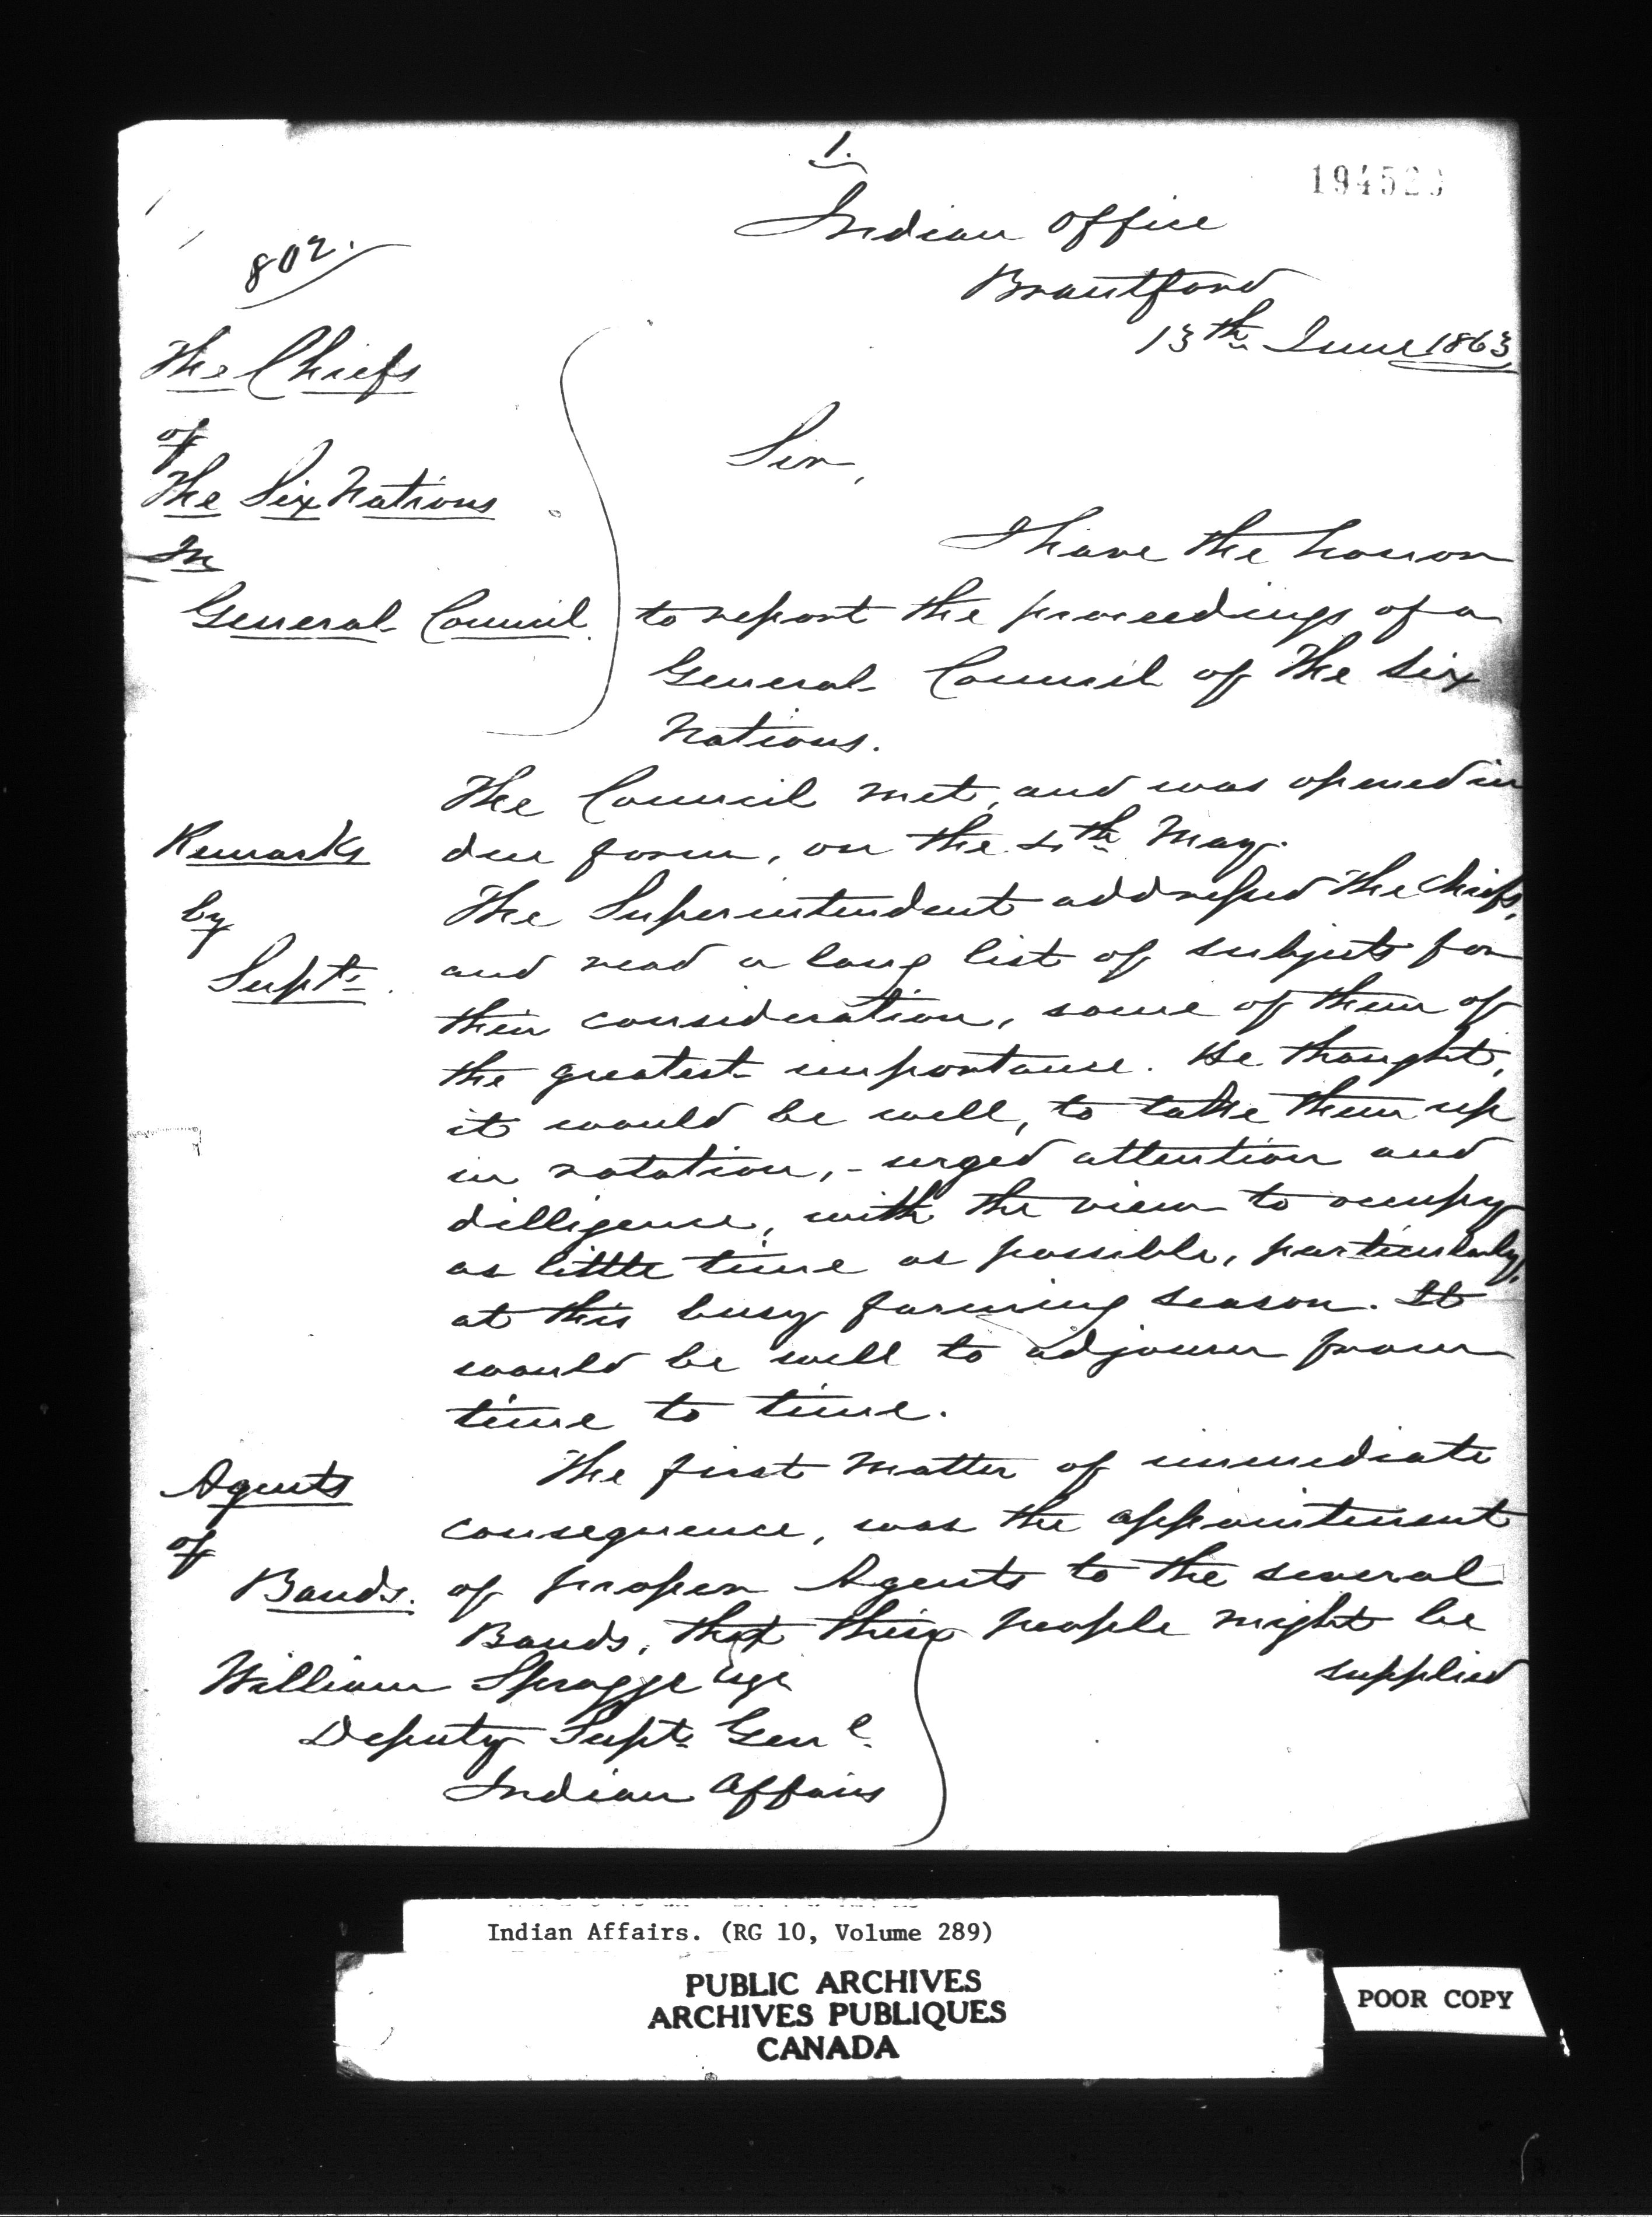 1.
194520
Indian Office
Brantford
13th June 1863
802.
The Chiefs
of
The Six Nations
In
General Council.
Sir,
I have the honor
to report the proceedings of a
General Council of the Six
Nations.
The Council met, and was opened in
due form, on the 4th May.
Remarks
by
Supt.
The Superintendent addressed the Chiefs,
and read a long list of subjects for
their consideration, some of them of
the greatest importance. He thought,
it would be well, to take them up
in rotation, - urged attention and
dilligence, with the view to occupy
as little time as possible, particularly,
at this busy farming season. It
would be well to adjourn from
time to time.
Agents
of
Bands.
The first matter of immediate
consequence, was the appointment
of proper Agents to the several
Bands, that their people might be
supplied
William Spragge Esqr
Deputy Supt. Genl.
Indian Affairs
Indian Affairs. (RG 10, Volume 289)
PUBLIC ARCHIVES
ARCHIVES PUBLIQUES
CANADA
POOR COPY